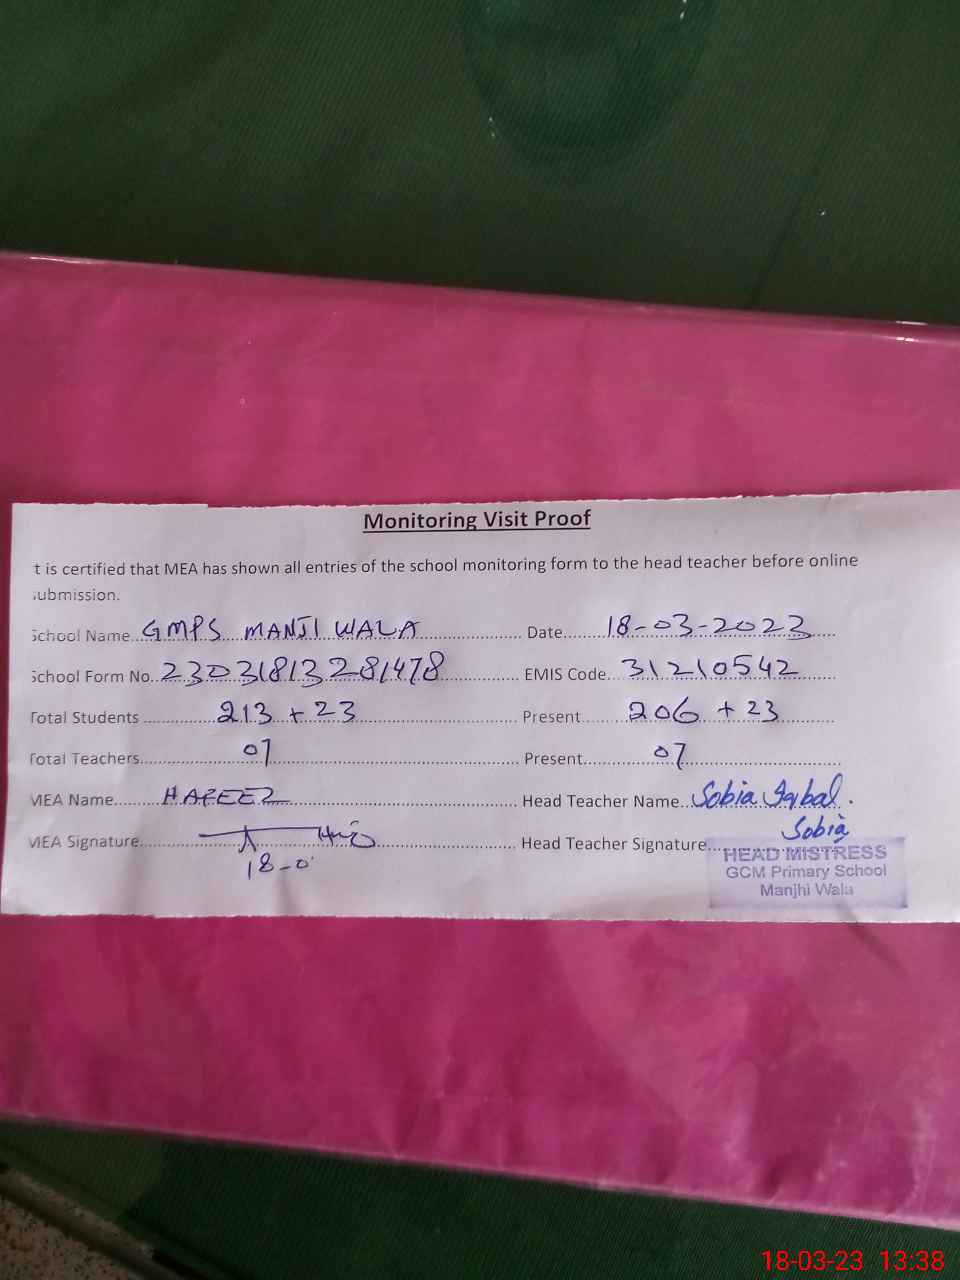 Monitoring Visit Proof
t is certified that MEA has shown all entries of the school monitoring form to the head teacher before online
submission.
School Name GMPS MANJI WALA Date 18-03-2023
School Form No. 23031813281478 EMIS Code 31210542
Total Students 213 + 23 Present 206 + 23
Total Teachers 07 Present 07
MEA Name HAFEEZ Head Teacher Name Sobia Iqbal.
MEA Signature Head Teacher Signature Sobia
18-0
HEAD MISTRESS
GCM Primary School
Manjhi Wala
18-03-23 13:38